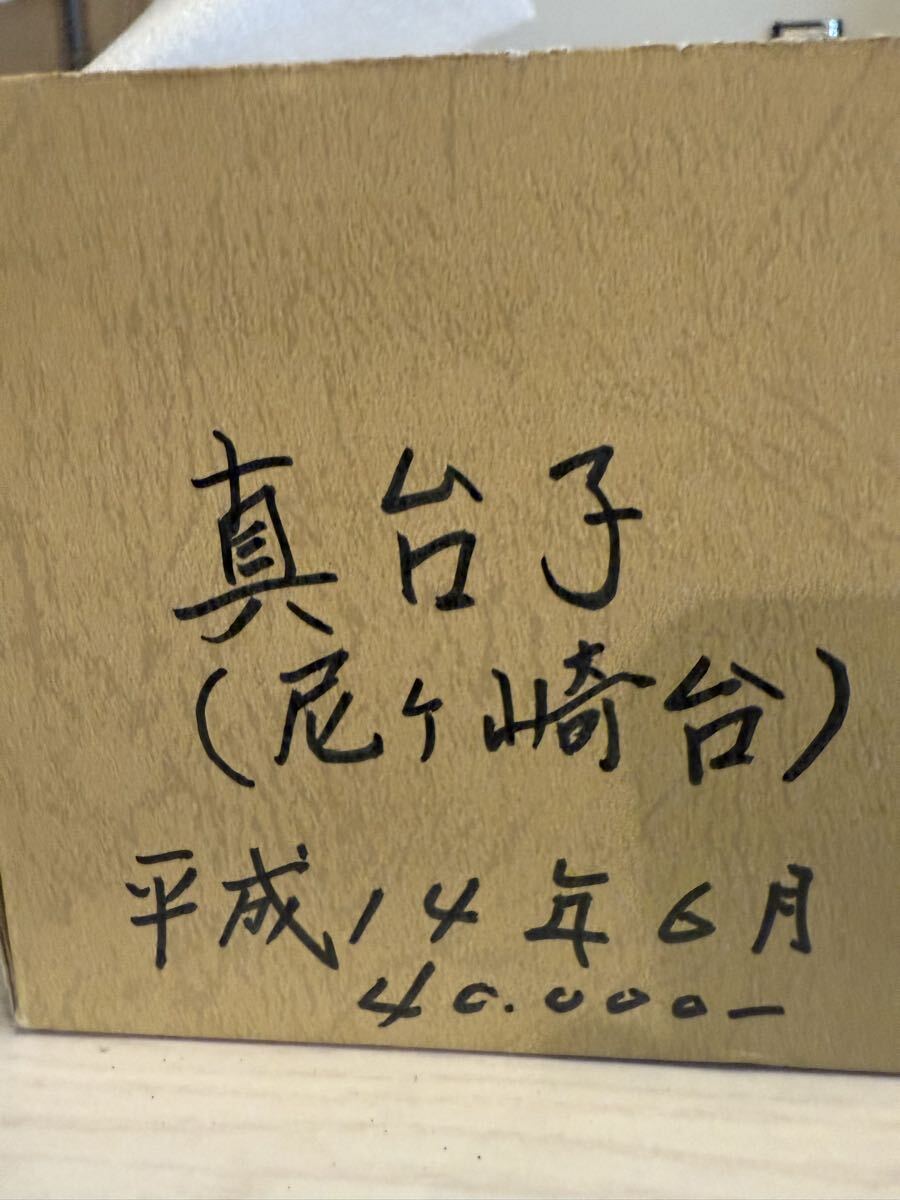 真台子
(尼ヶ崎台)
平成14年6月
40.000-